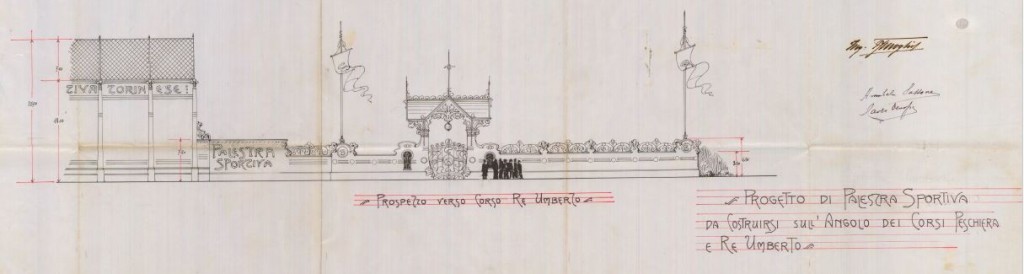 ZIVA TORINESE:
PALESTRA
SPORTIVA
PROSPETTO VERSO CORSO RE UMBERTO
PROGETTO DI PALESTRA SPORTIVA
DA COSTRUIRSI SULL'ANGOLO DEI CORSI PESCHIERA
E RE UMBERTO
Ing.